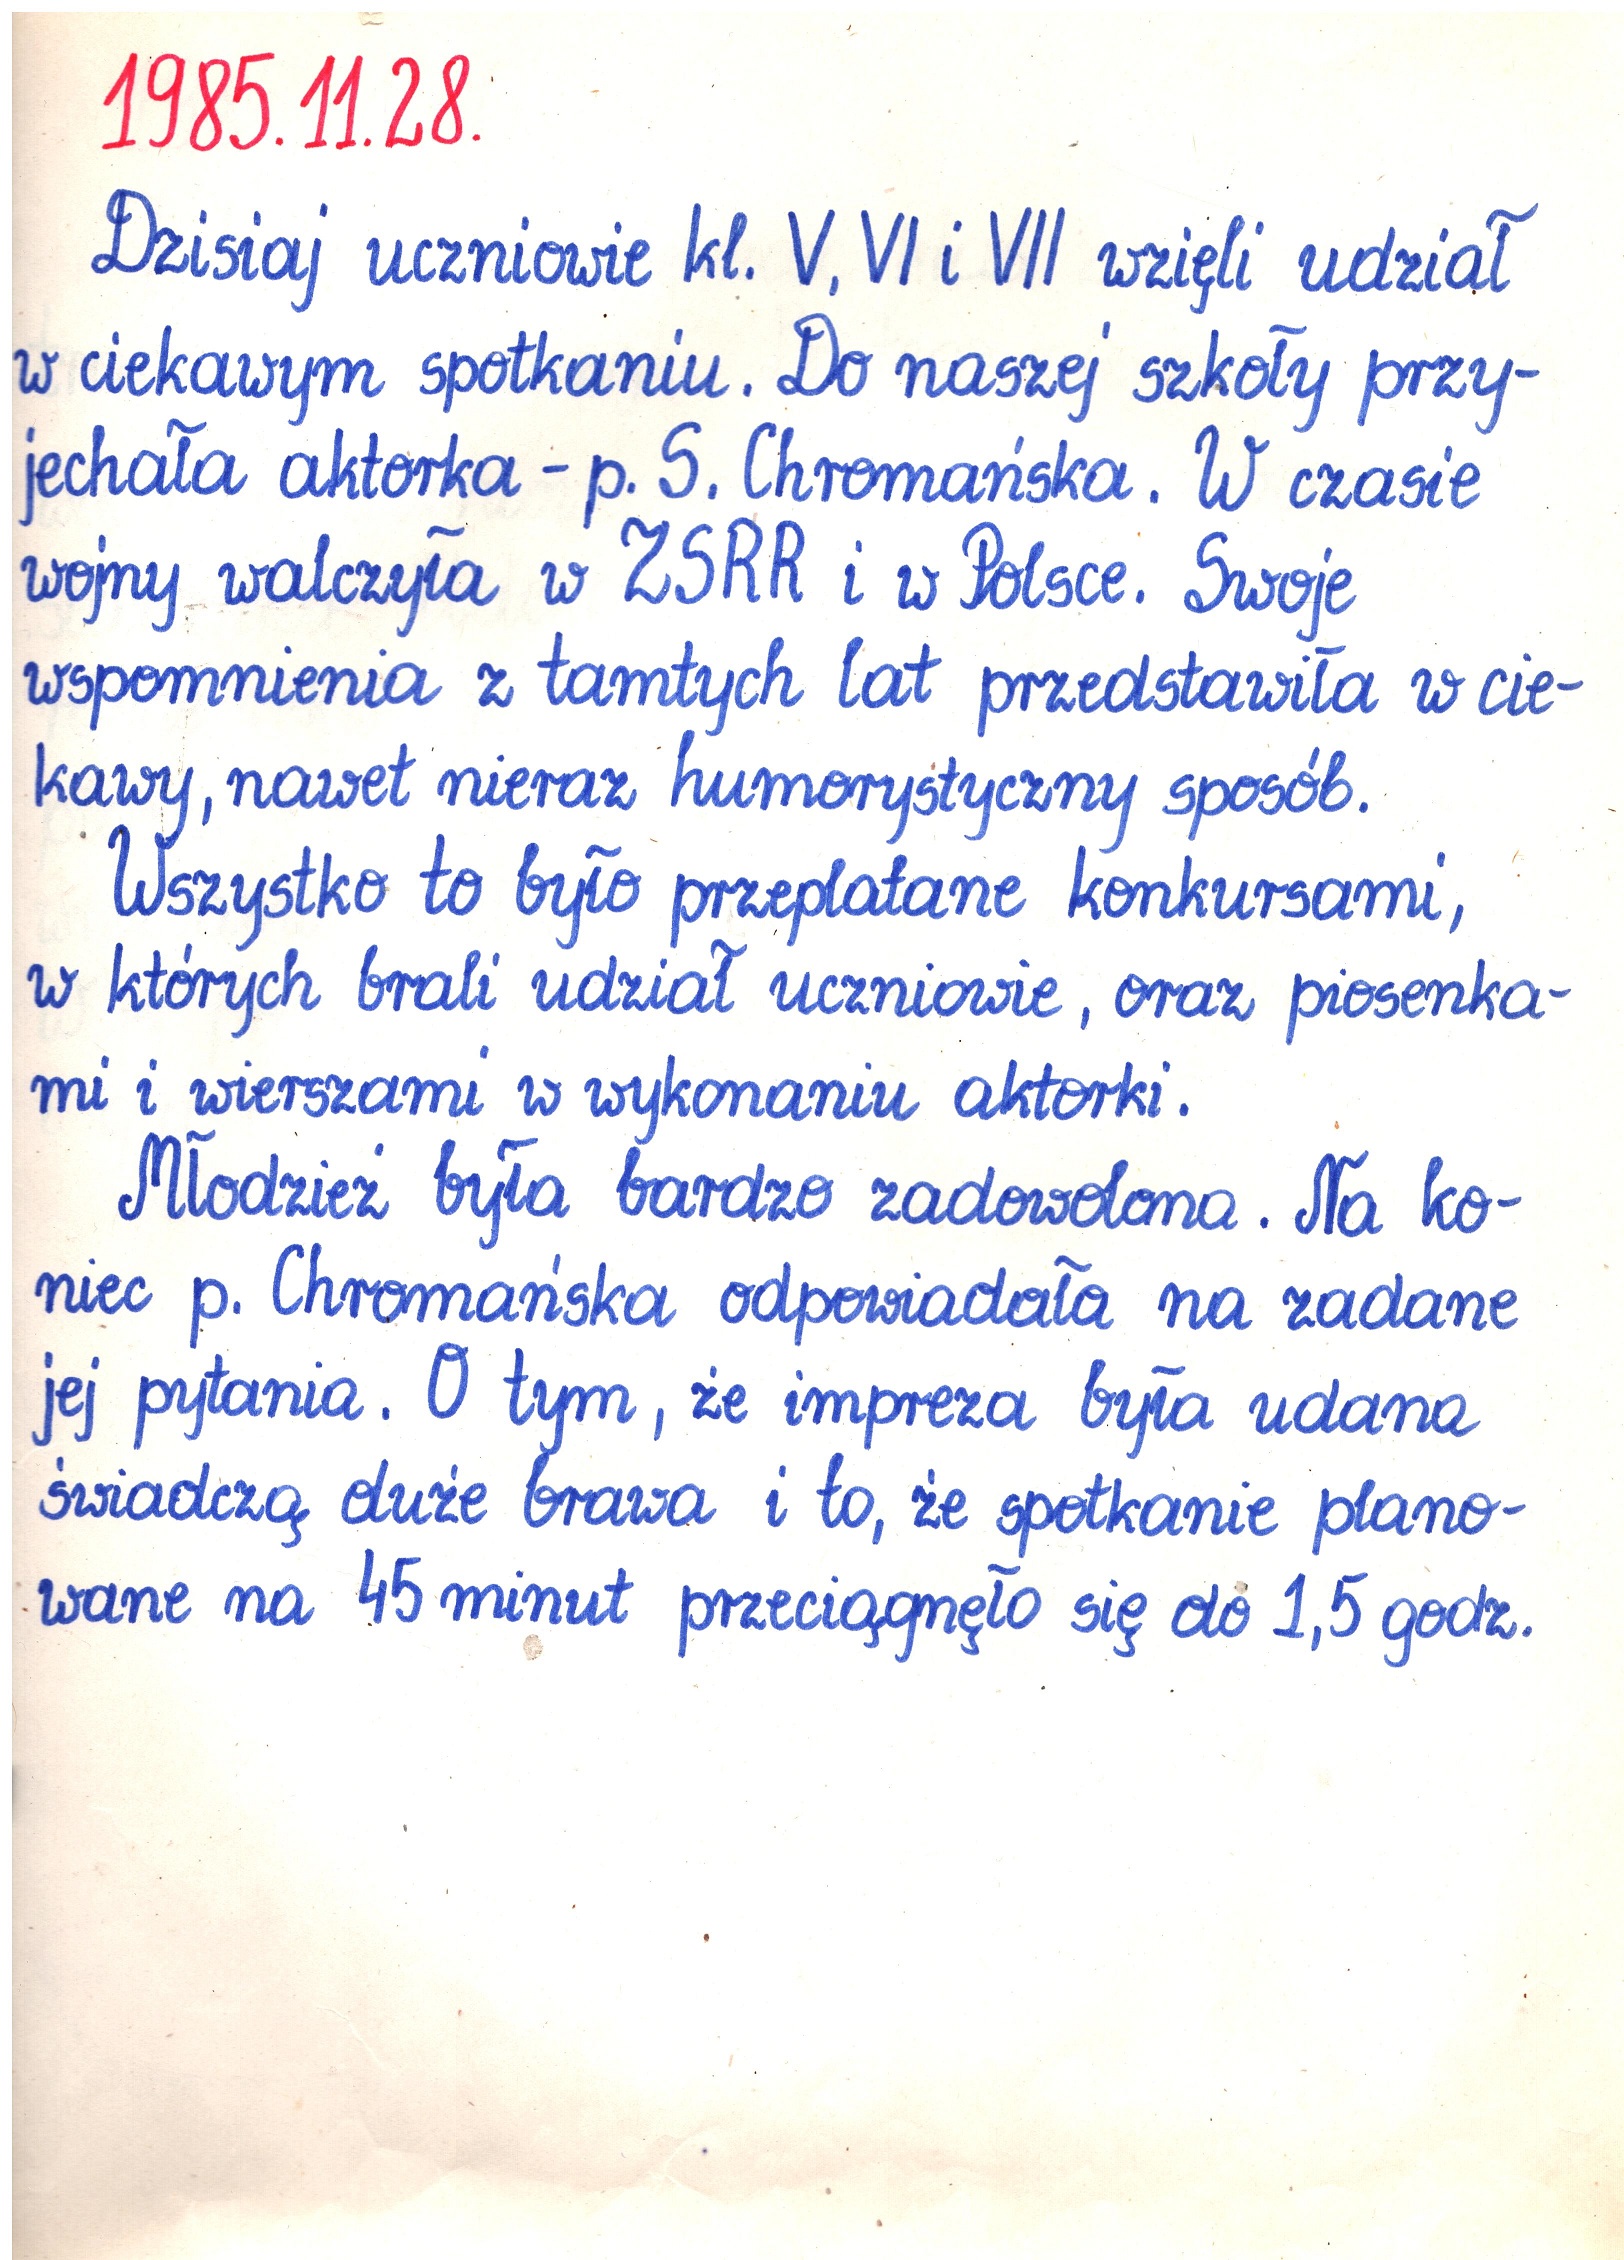 1985.11.28.
Dzisiaj uczniowie kl. V, VI i VII wzięli udział
w ciekawym spotkaniu. Do naszej szkoły przy-
jechała aktorka - p. S. Chromańska. W czasie
wojny walczyła w ZSRR i w Polsce. Swoje
wspomnienia z tamtych lat przedstawiła w cie-
kawy, nawet nieraz humorystyczny sposób.
Wszystko to było przeplatane konkursami,
w których brali udział uczniowie, oraz piosenka-
mi i wierszami w wykonaniu aktorki.
Młodzież była bardzo zadowolona. Na ko-
niec p. Chromańska odpowiadała na zadane
jej pytania. O tym, że impreza była udana
świadczą duże brawa i to, że spotkanie plano-
wane na 45 minut przeciągnęło się do 1,5 godz.